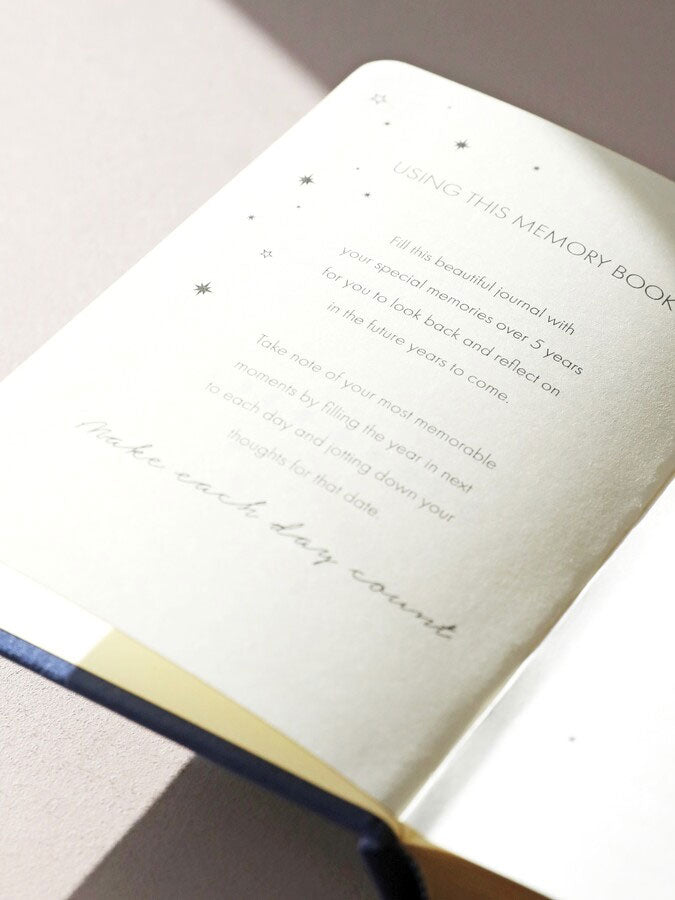 USING THIS MEMORY BOOK
Fill this beautiful journal with
your special memories over 5 years
for you to look back and reflect on
in the future years to come.
Take note of your most memorable
moments by filling the year in next
to each day and jotting down your
thoughts for that date.
Make each day count